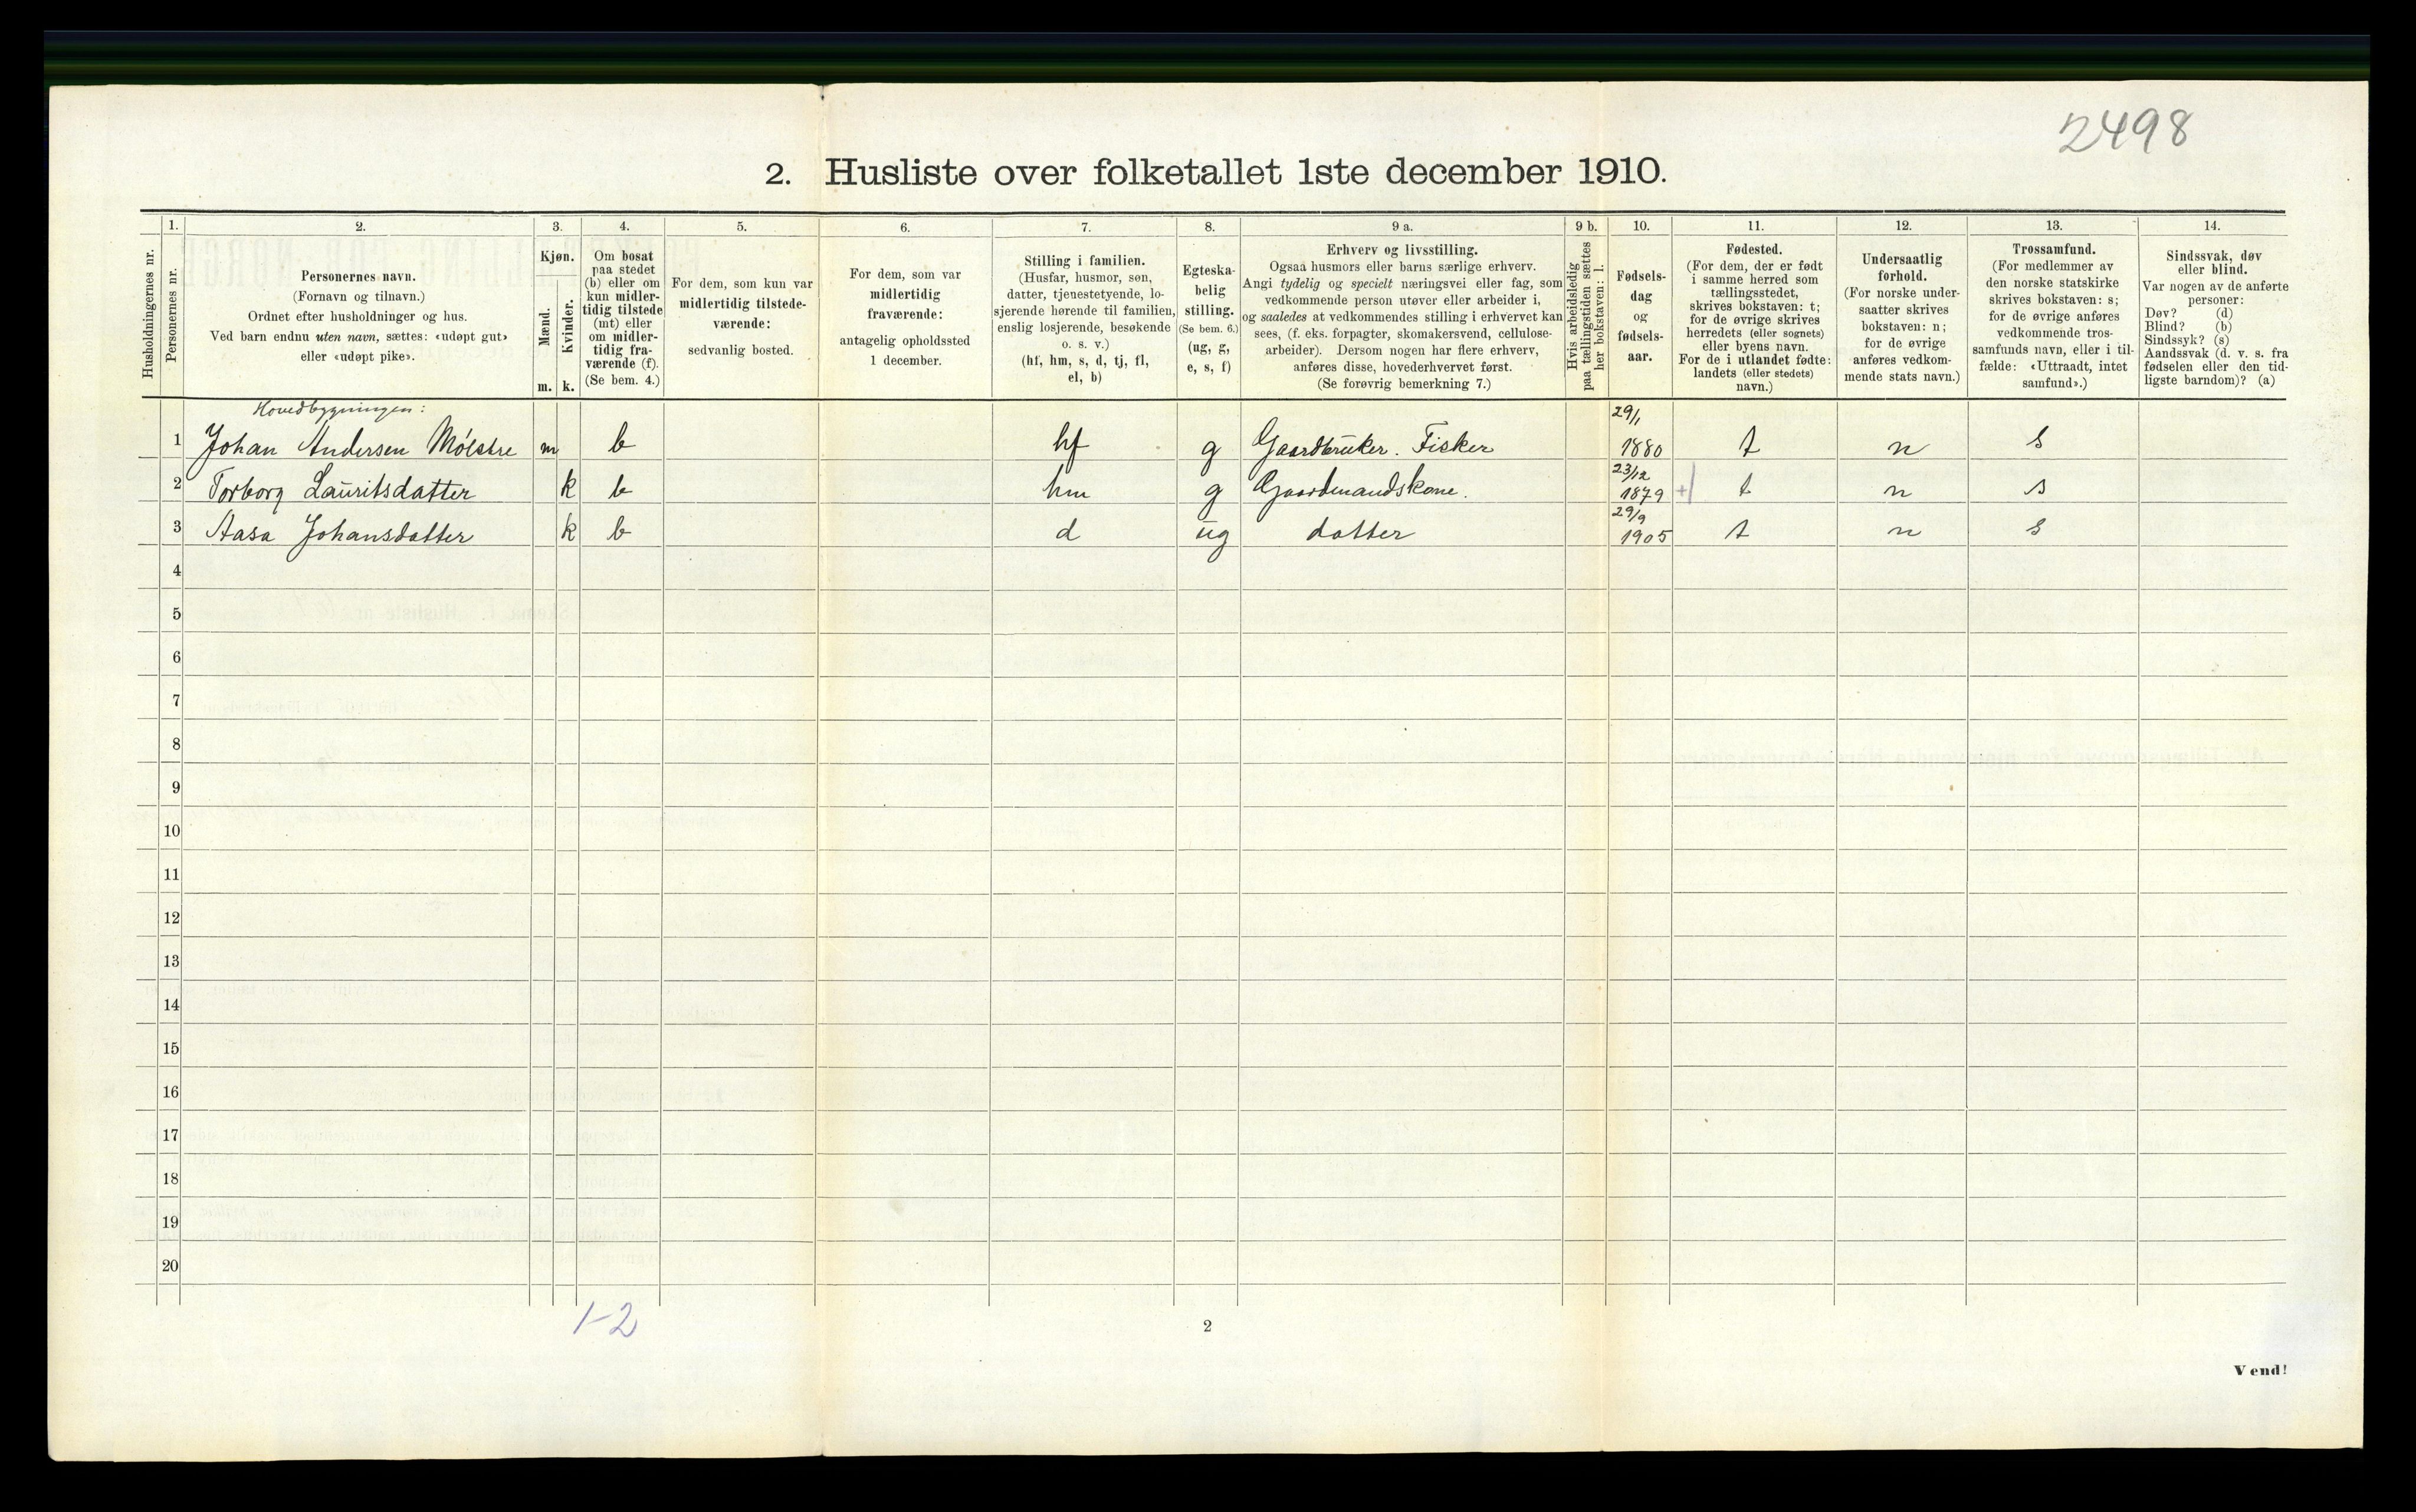 2498
2. Husliste over folketallet 1ste december 1910.
Husholdningernes nr.
1.
Personernes nr.
2.
Personernes navn.
(Fornavn og tilnavn.)
Ordnet efter husholdninger og hus.
Ved barn endnu uten navn, sættes: «udøpt gut»
eller «udøpt pike».
3.
Kjøn.
Mænd.
m.
Kvinder.
k.
4.
Om bosat
paa stedet
(b) eller om
kun midler-
tidig tilstede
(mt) eller
om midler-
tidig fra-
værende (f).
(Se bem. 4.)
5.
For dem, som kun var
midlertidig tilstede-
værende:
sedvanlig bosted.
6.
For dem, som var
midlertidig
fraværende:
antagelig opholdssted
1 december.
7.
Stilling i familien.
(Husfar, husmor, søn,
datter, tjenestetyende, lo-
sjerende hørende til familien,
enslig losjerende, besøkende
o. s. v.)
(hf, hm, s, d, tj, fl,
el, b)
8.
Egteska-
belig
stilling.
(Se bem. 6.)
(ug, g,
e, s, f)
9 a.
Erhverv og livsstilling.
Ogsaa husmors eller barns særlige erhverv.
Angi tydelig og specielt næringsvei eller fag, som
vedkommende person utøver eller arbeider i,
og saaledes at vedkommendes stilling i erhvervet kan
sees, (f. eks. forpagter, skomakersvend, cellulose-
arbeider). Dersom nogen har flere erhverv,
anføres disse, hovederhvervet først.
(Se forøvrig bemerkning 7.)
9 b.
Hvis arbeidsledig
paa tællingstiden sættes
her bokstaven: l.
10.
Fødsels-
dag
og
fødsels-
aar.
11.
Fødested.
(For dem, der er født
i samme herred som
tællingsstedet,
skrives bokstaven: t;
for de øvrige skrives
herredets (eller sognets)
eller byens navn.
For de i utlandet fødte:
landets (eller stedets)
navn.)
12.
Undersaatlig
forhold.
(For norske under-
saatter skrives
bokstaven: n;
for de øvrige
anføres vedkom-
mende stats navn.)
13.
Trossamfund.
(For medlemmer av
den norske statskirke
skrives bokstaven: s;
for de øvrige anføres
vedkommende tros-
samfunds navn, eller i til-
fælde: «Uttraadt, intet
samfund».)
14.
Sindssvak, døv
eller blind.
Var nogen av de anførte
personer:
Døv? (d)
Blind? (b)
Sindssyk? (s)
Aandssvak (d. v. s. fra
fødselen eller den tid-
ligste barndom)? (a)
Hovedbygningen:
1 Johan Andersen Mølstre m b hf g Gaardbruker. Fisker 29/1 1880 t n s
2 Torborg Lauritsdatter k b hm g Gaardmandskone. 23/12 1879 t n s
3 Aasa Johansdatter k b d ug datter 29/9 1905 t n s
4
5
6
7
8
9
10
11
12
13
14
15
16
17
18
19
20
1-2
2
Vend!